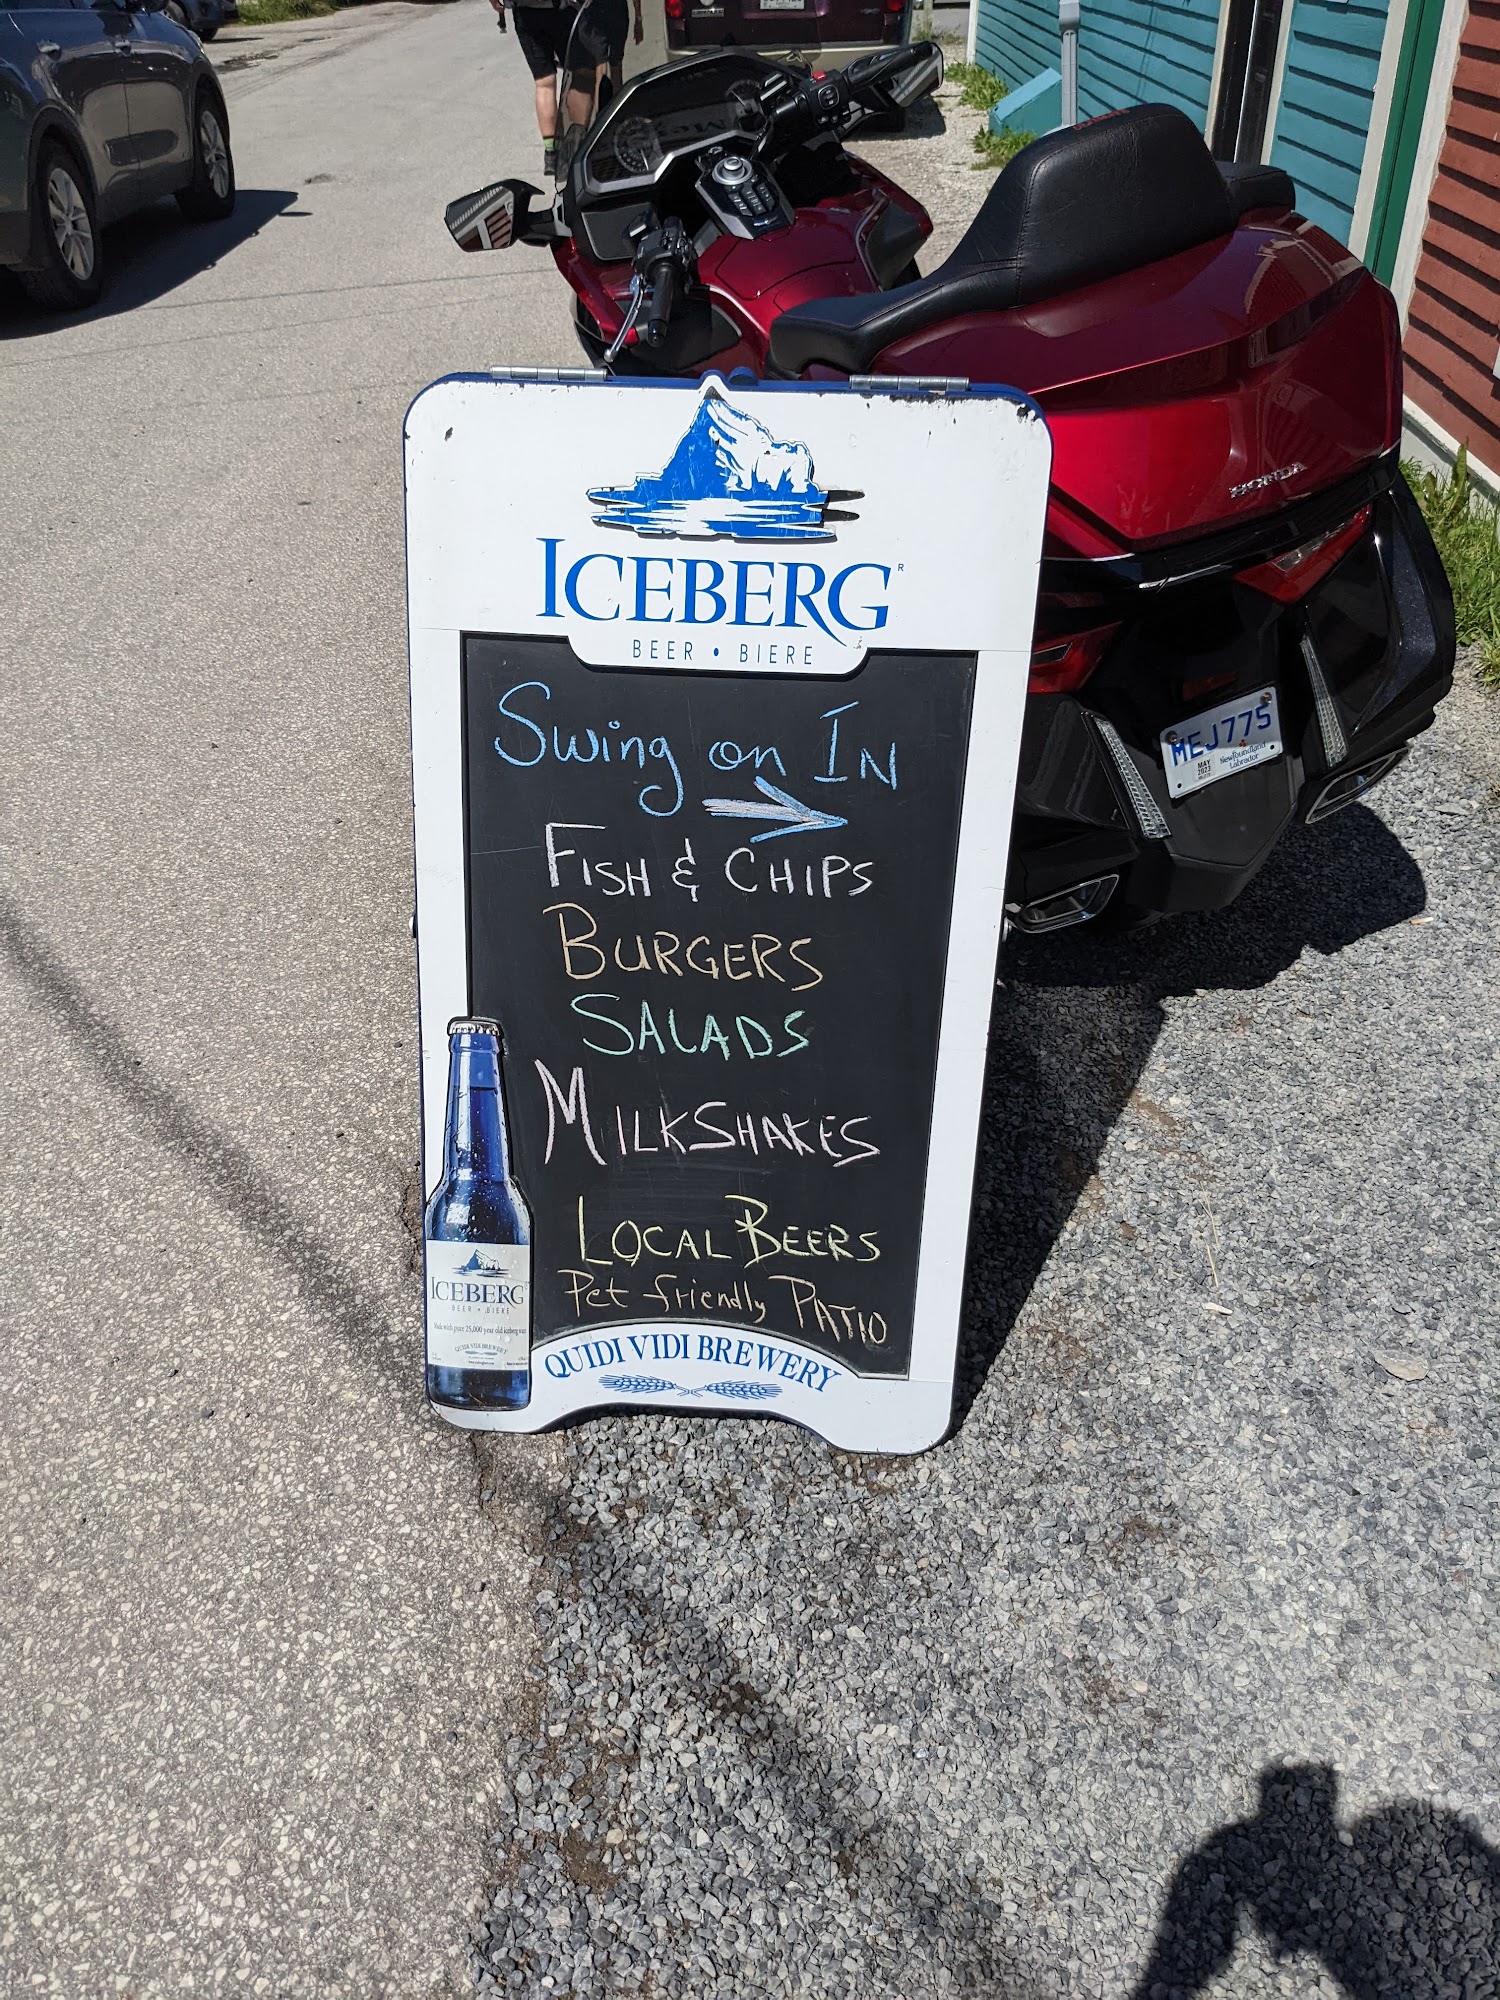 HONDA
MEJ775
MAY
2023
Newfoundland
Labrador
ICEBERG
BEER • BIERE
Swing on IN
FISH & CHIPS
BURGERS
SALADS
MILKSHAKES
LOCAL BEERS
Pet friendly PATIO
ICEBERG
BEER • BIERE
Made with pure 25,000 year old iceberg water
QUIDI VIDI BREWERY
QUIDI VIDI BREWERY